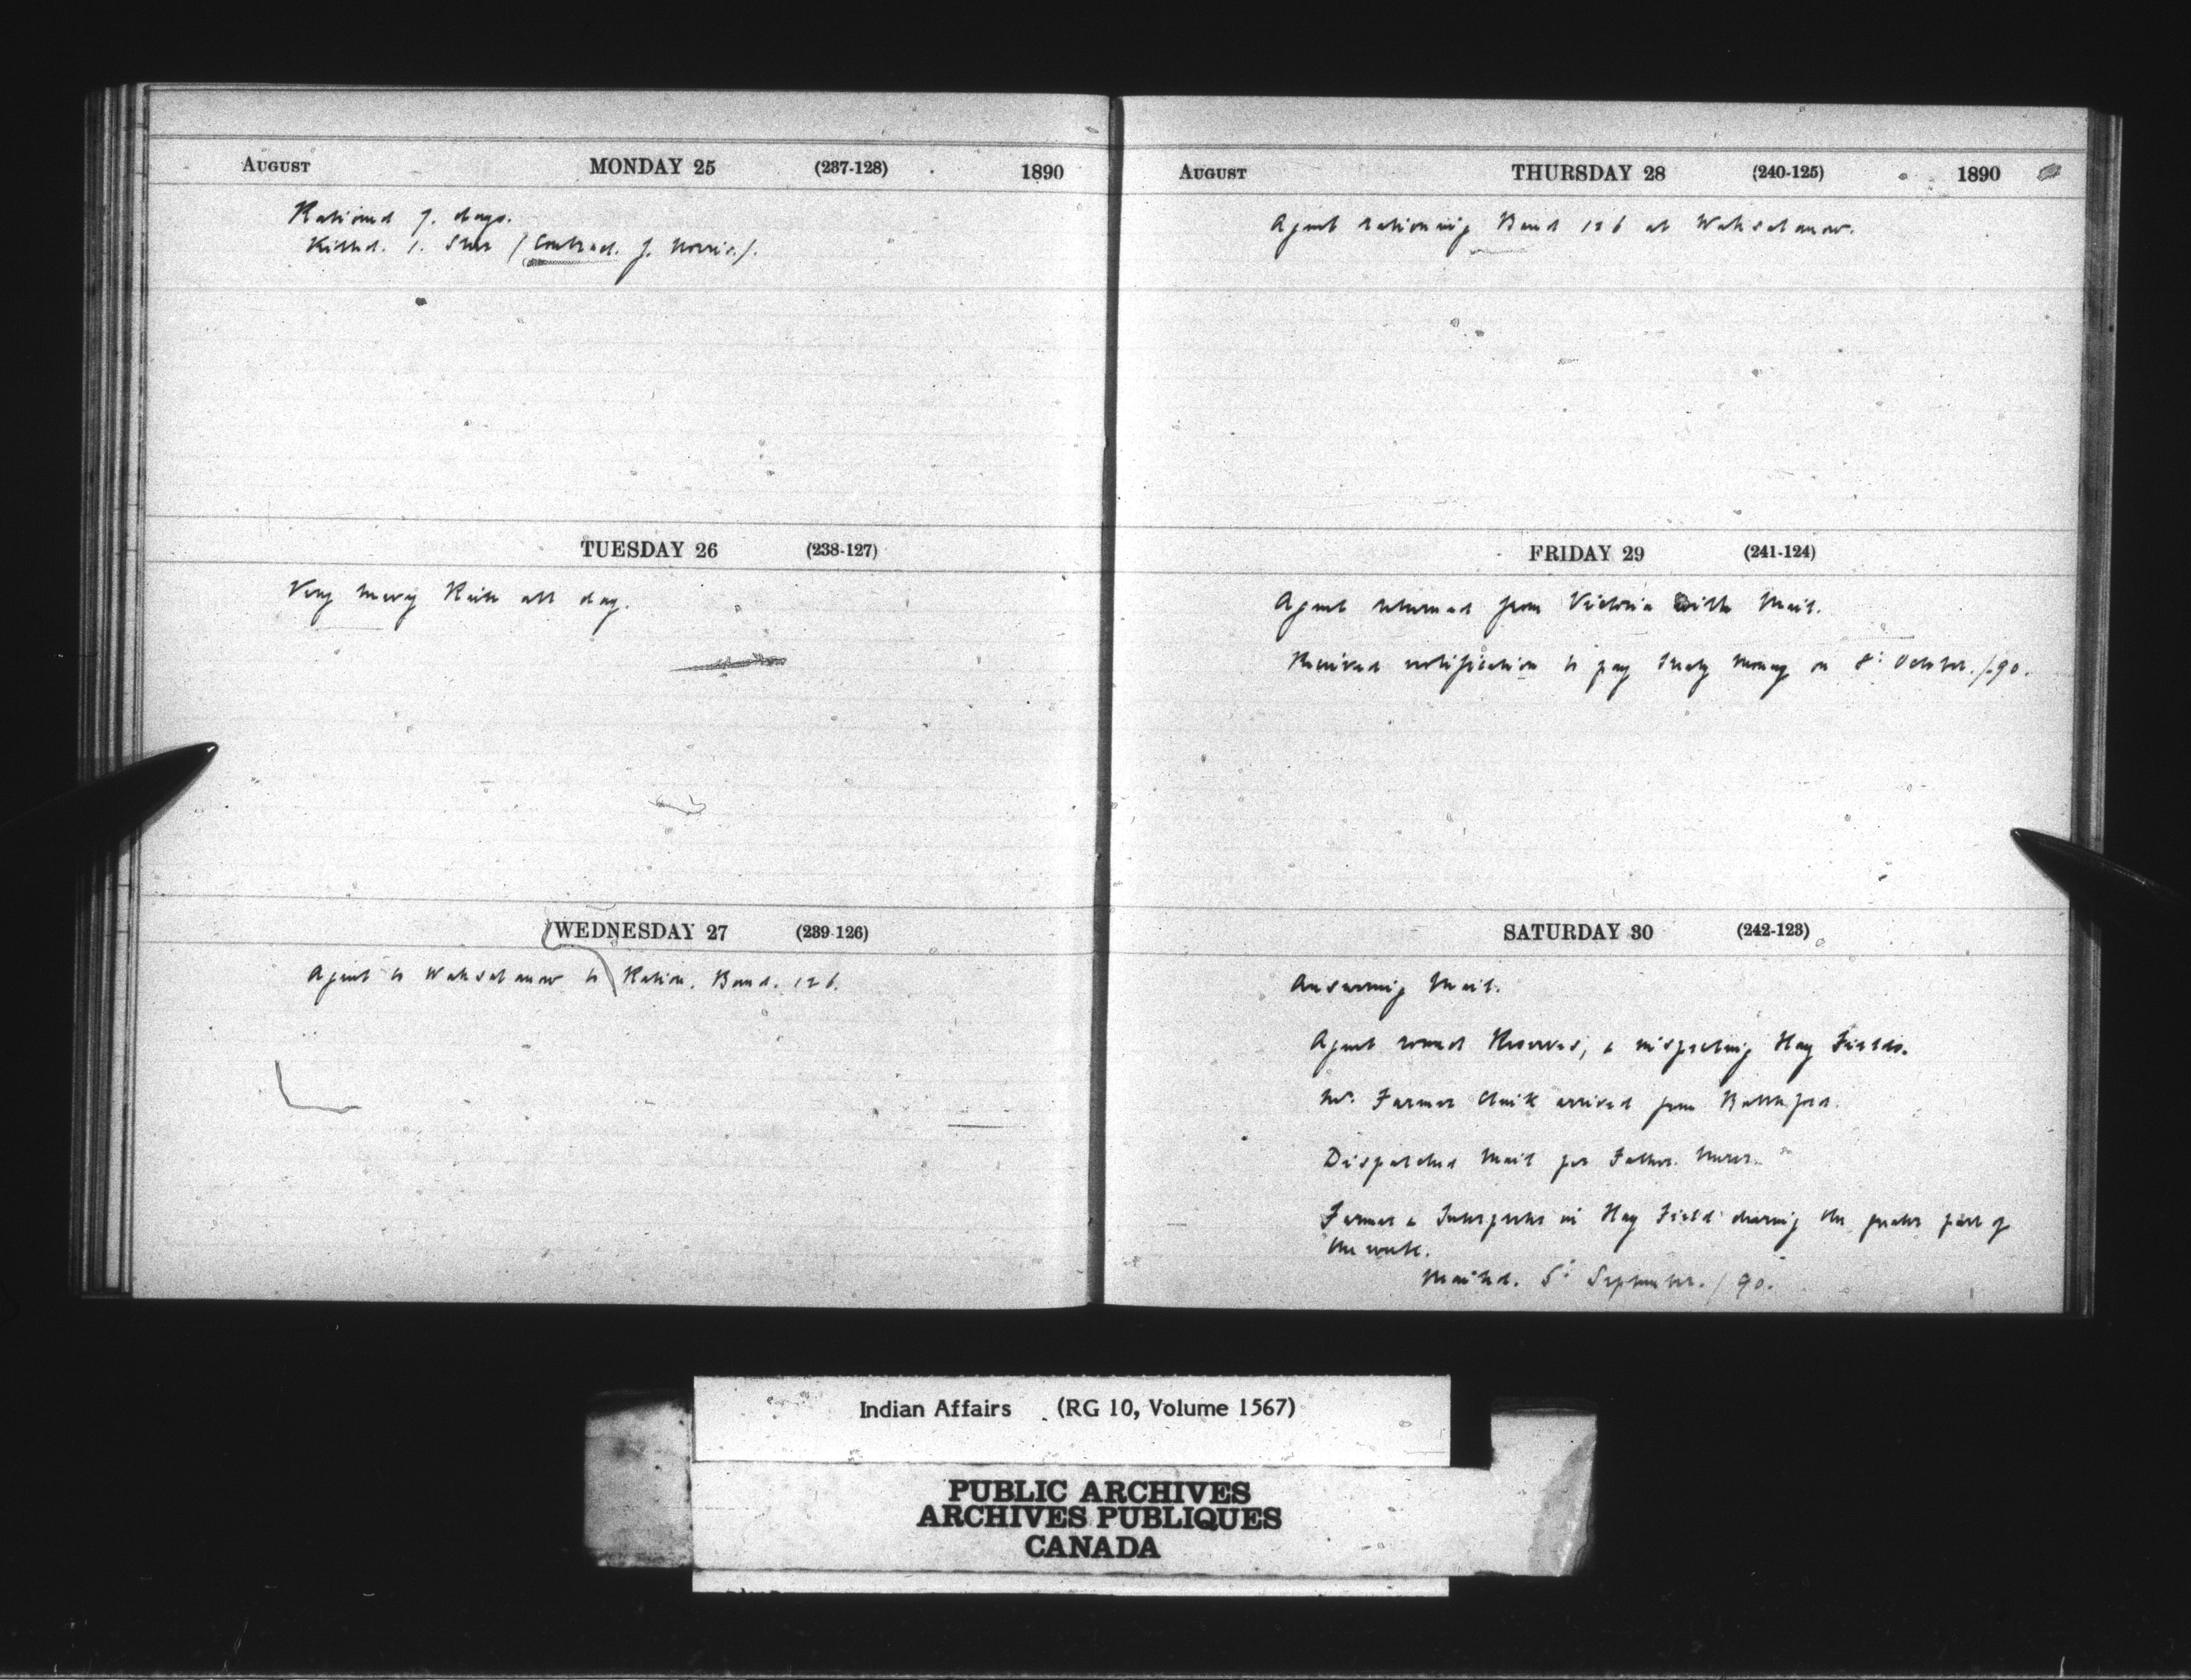 AUGUST MONDAY 25 (237-128) 1890
Rationed 7. days.
Killed. 1. Steer / Contract. J. Norris. /.
TUESDAY 26 (238-127)
Very heavy Rain all day.
WEDNESDAY 27 (239-126)
Agent to Wahsatanow to Ration. Band. 126.
AUGUST THURSDAY 28 (240-125) 1890
Agent rationing Band 126 at Wahsatanow.
FRIDAY 29 (241-124)
Agent returned from Victoria with Mail.
Received notification to pay Treaty money on 8: October. /90.
SATURDAY 30 (242-123)
Answering Mail.
Agent round Reserves, & inspecting Hay Fields.
Mr. Farmer arrived from Battleford.
Dispatched Mail per Father.
Farmer & Interpreter in Hay Field during the greater part of
the week.
Mailed. 5: September. / 90.
Indian Affairs (RG 10, Volume 1567)
PUBLIC ARCHIVES
ARCHIVES PUBLIQUES
CANADA